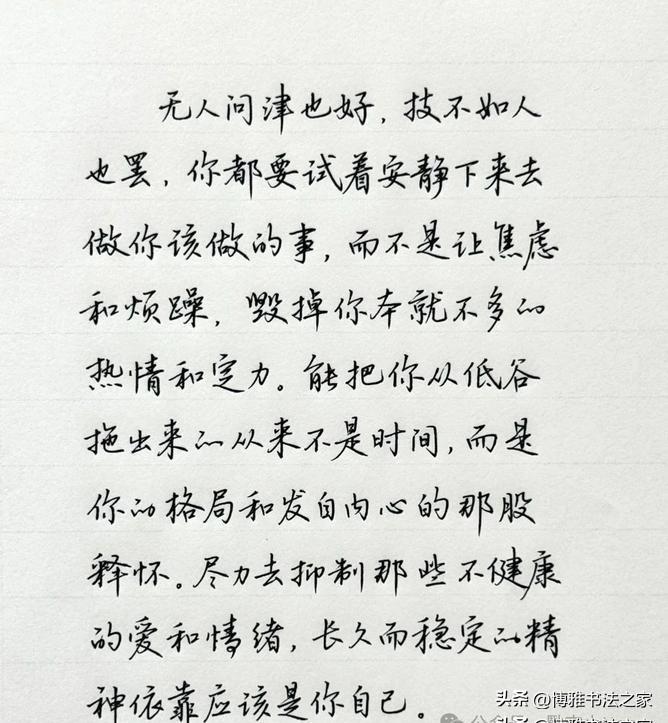 无人问津也好，技不如人
也罢，你都要试着安静下来去
做你该做的事，而不是让焦虑
和烦躁，毁掉你本就不多的
热情和定力。能把你从低谷
拖出来的从来不是时间，而是
你的格局和发自内心的那股
释怀。尽力去抑制那些不健康
的爱和情绪，长久而稳定的精
神依靠应该是你自己。
头条 @博雅书法之家